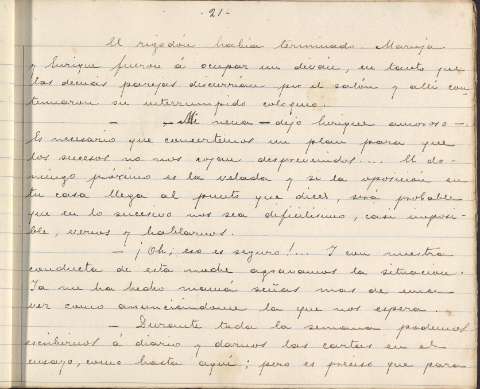 -21-
El rigodón había terminado Maruja
y Enrique fueron á ocupar un diván, en tanto que
las demás parejas discurrían por el salón y allí con-
tinuaron su interrumpido coloquio.
— — Mi nena — dijo Enrique amoroso —.
Es necesario que concertemos un plan para que
los sucesos no nos cojan desprevenidos.... El do-
mingo próximo es la velada y si la oposición en
tu casa llega al punto que dices, será probable
que en lo sucesivo nos sea dificilísimo, casi imposi-
ble, vernos y hablarnos.
— ¡Oh, eso es seguro!... Y con nuestra
conducta de esta noche agravamos la situación.
Ya me ha hecho mamá señas mas de una
vez como anunciándome la que nos espera.
— Durante toda la semana podemos
escribirnos á diario y darnos las cartas en el
ensayo, como hasta aquí; pero es preciso que para